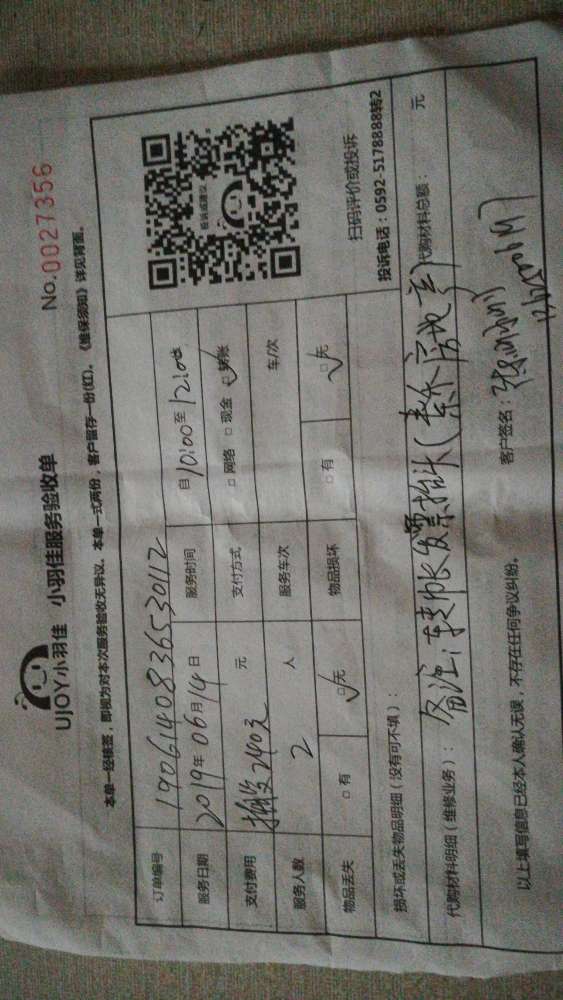 UJOY小羽佳 小羽佳服务验收单
No.0027356
本单一经核签，即视为对本次服务验收无异议。本单一式两份，客户留存一份(红)。《维保须知》详见背面。
订单编号 1906140836530112
服务日期 2019年06月14日 服务时间 自10:00至12:00
支付费用 240元 元 支付方式 □ 网络 □ 现金 ☑ 转账
服务人数 2 人 服务车次 车/次
物品丢失 □ 有 ☑无 物品损坏 □ 有 ☑无
投诉或建议
扫码评价或投诉
投诉电话：0592-5178888转2
损坏或丢失物品明细（没有可不填）：
代购材料明细（维修业务）： 代购材料总额： 元
备注：转帐发票抬头(泰禾房地产)
以上填写信息已经本人确认无误，不存在任何争议纠纷。 客户签名：